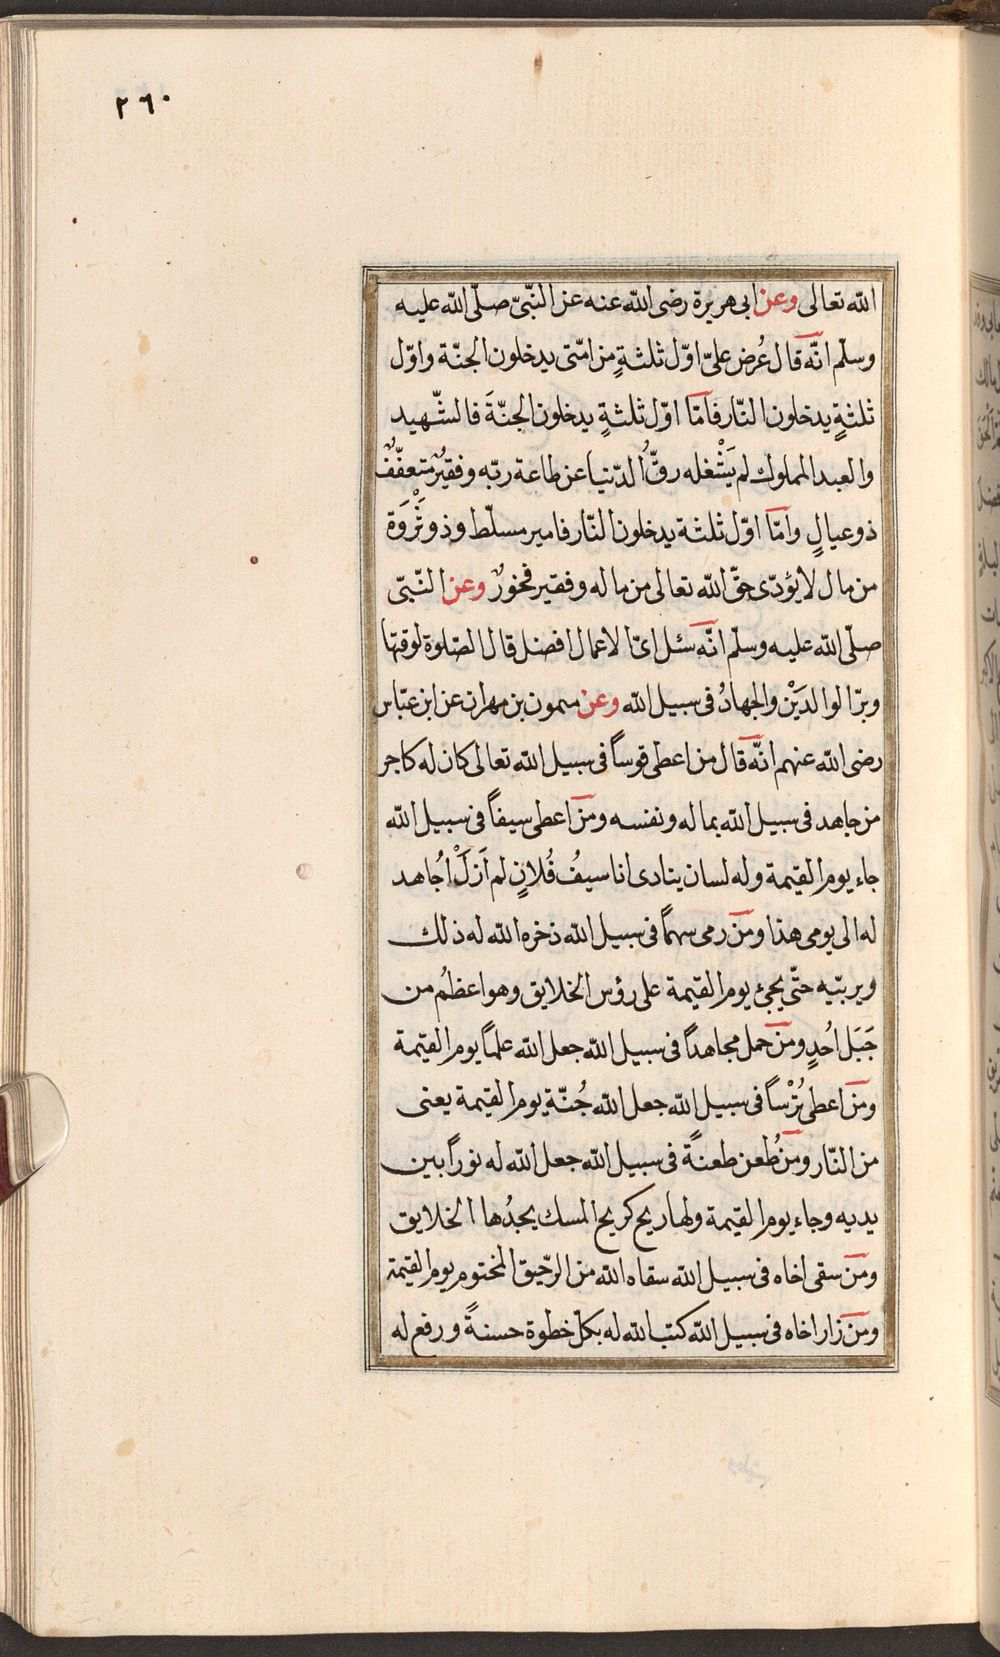 ٢٦٠
الله تعالى وعن ابى هريرة رضى الله عنه عن النّبىّ صلّى الله عليه
وسلّم انّه قال عُرض علىّ اوّل ثلثةٍ من امّتى يدخلون الجنّة واوّل
ثلثةٍ يدخلون النّار فامّا اوّل ثلثةٍ يدخلون الجنّةَ فالشّهيد
والعبد المملوك لم يَشْغله رقُّ الدّنيا عن طاعة ربّه وفقيرٌ متعفّفٌ
ذو عيالٍ وامّا اوّل ثلثة يدخلون النّار فامير مسلّط وذو ثَرْوَة
من مال لا يؤدّى حقّ الله تعالى من ماله وفقير فخورٌ وعن النّبّى
صلّى الله عليه وسلّم انّه سئل اىّ الاعمال افضل قال الصّلوة لوقتها
وبرّ الوالدَيْن والجهادُ فى سبيل الله وعن ميمون بن مهران عن ابن عبّاس
رضى الله عنهم انّه قال من اعطى قوساً فى سبيل الله تعالى كان له كاجر
من جاهد فى سبيل الله بماله ونفسه ومن اعطى سيفاً فى سبيل الله
جاء يوم القيمة وله لسان ينادى انا سيفُ فُلانٍ لم اَزَلْ اُجاهد
له الى يومى هذا ومن رمى سهماً فى سبيل الله ذخره الله له ذلك
ويربّيه حتّى يجئ يوم القيمة على رؤس الخلايق وهو اعظمُ من
جَبَل اُحُدٍ ومن حمل مجاهداً فى سبيل الله جعل الله علماً يوم القيمة
ومن اعطى تُرْساً فى سبيل الله جعل الله جُنّة يوم القيمة يعنى
من النّار ومن طُعن طعنةً فى سبيل الله جعل الله له نوراً بين
يديه وجاء يوم القيمة ولها ريح كريح المسك يجدُها الخلايق
ومن سقى اخاه فى سبيل الله سقاه الله من الرّحيق المختوم يوم القيمة
ومن زار اخاه فى سبيل الله كتب الله له بكلّ خطوة حسنةً ورفع له